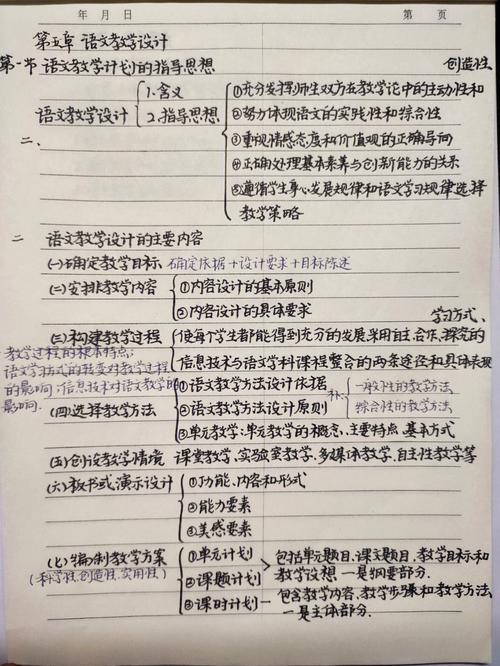 年 月 日 第 页
第五章 语文教学设计
第一节 语文教学计划的指导思想 创造性
语文教学设计
1.含义
2.指导思想
①充分发挥师生双方在教学论中的主动性和
②努力体现语文的实践性和综合性
③重视情感态度和价值观的正确导向
④正确处理基本素养与创新能力的关系
⑤遵循学生身心发展规律和语文学习规律选择
教学策略
二、
二 语文教学设计的主要内容
(一)确定教学目标 确定依据+设计要求+目标陈述
(二)安排教学内容
①内容设计的基本原则
②内容设计的具体要求
学习方式、
(三)构建教学过程
使每个学生都能得到充分的发展采用自主、合作、探究的
信息技术与语文学科课程整合的两条途径和具体表现
教学过程的根本特点;
语文学习方式的转变对教学过程
的影响;信息技术对语文教学的
影响.
(四)选择教学方法
①语文教学方法设计依据
②语文教学方法设计原则
③单元教学:单元教学的概念、主要特点、基本方式
补:
一般性的教学方法
综合性的教学方法
(五)创设教学情境 课堂教学、实验室教学、多媒体教学、自主性教学等
(六)板书或演示设计
①功能、内容和形式
②能力要素
③美感要素
(七)编制教学方案
(科学性、创造性、实用性)
①单元计划
②课题计划
③课时计划
包括单元题目、课文题目、教学目标和
教学设想 一是纲要部分.
包含教学内容、教学步骤和教学方法、
一是主体部分.